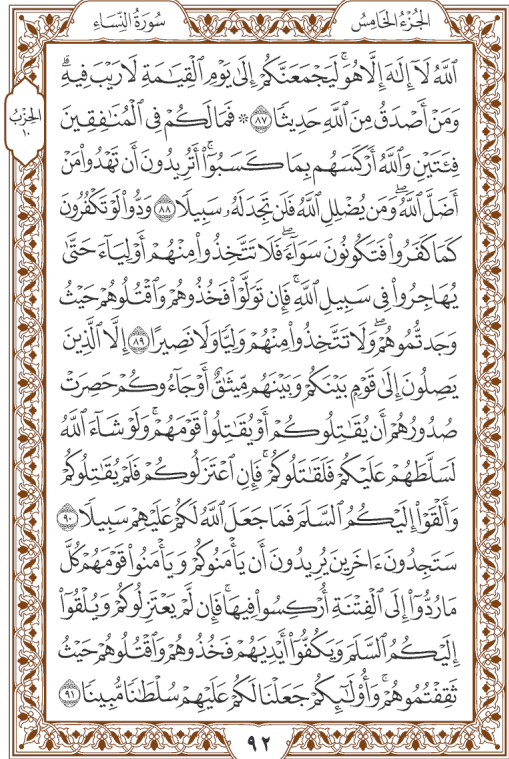 الجُزْءُ الخَامِسُ
سُورَةُ النِّسَاءِ
ٱللَّهُ لَآ إِلَٰهَ إِلَّا هُوَۚ لَيَجْمَعَنَّكُمْ إِلَىٰ يَوْمِ ٱلْقِيَٰمَةِ لَا رَيْبَ فِيهِۗ
وَمَنْ أَصْدَقُ مِنَ ٱللَّهِ حَدِيثًا ٨٧ ۞ فَمَا لَكُمْ فِي ٱلْمُنَٰفِقِينَ
فِئَتَيْنِ وَٱللَّهُ أَرْكَسَهُم بِمَا كَسَبُوٓا۟ۚ أَتُرِيدُونَ أَن تَهْدُوا۟ مَنْ
أَضَلَّ ٱللَّهُۖ وَمَن يُضْلِلِ ٱللَّهُ فَلَن تَجِدَ لَهُۥ سَبِيلًا ٨٨ وَدُّوا۟ لَوْ تَكْفُرُونَ
كَمَا كَفَرُوا۟ فَتَكُونُونَ سَوَآءًۖ فَلَا تَتَّخِذُوا۟ مِنْهُمْ أَوْلِيَآءَ حَتَّىٰ
يُهَاجِرُوا۟ فِي سَبِيلِ ٱللَّهِۚ فَإِن تَوَلَّوْا۟ فَخُذُوهُمْ وَٱقْتُلُوهُمْ حَيْثُ
وَجَدتُّمُوهُمْۖ وَلَا تَتَّخِذُوا۟ مِنْهُمْ وَلِيًّا وَلَا نَصِيرًا ٨٩ إِلَّا ٱلَّذِينَ
يَصِلُونَ إِلَىٰ قَوْمٍۭ بَيْنَكُمْ وَبَيْنَهُم مِّيثَٰقٌ أَوْ جَآءُوكُمْ حَصِرَتْ
صُدُورُهُمْ أَن يُقَٰتِلُوكُمْ أَوْ يُقَٰتِلُوا۟ قَوْمَهُمْۚ وَلَوْ شَآءَ ٱللَّهُ
لَسَلَّطَهُمْ عَلَيْكُمْ فَلَقَٰتَلُوكُمْۚ فَإِنِ ٱعْتَزَلُوكُمْ فَلَمْ يُقَٰتِلُوكُمْ
وَأَلْقَوْا۟ إِلَيْكُمُ ٱلسَّلَمَ فَمَا جَعَلَ ٱللَّهُ لَكُمْ عَلَيْهِمْ سَبِيلًا ٩٠
سَتَجِدُونَ ءَاخَرِينَ يُرِيدُونَ أَن يَأْمَنُوكُمْ وَيَأْمَنُوا۟ قَوْمَهُمْ كُلَّ
مَا رُدُّوٓا۟ إِلَى ٱلْفِتْنَةِ أُرْكِسُوا۟ فِيهَاۚ فَإِن لَّمْ يَعْتَزِلُوكُمْ وَيُلْقُوٓا۟
إِلَيْكُمُ ٱلسَّلَمَ وَيَكُفُّوٓا۟ أَيْدِيَهُمْ فَخُذُوهُمْ وَٱقْتُلُوهُمْ حَيْثُ
ثَقِفْتُمُوهُمْۚ وَأُو۟لَٰٓئِكُمْ جَعَلْنَا لَكُمْ عَلَيْهِمْ سُلْطَٰنًا مُّبِينًا ٩١
الحِزْبُ
١٠
٩٢